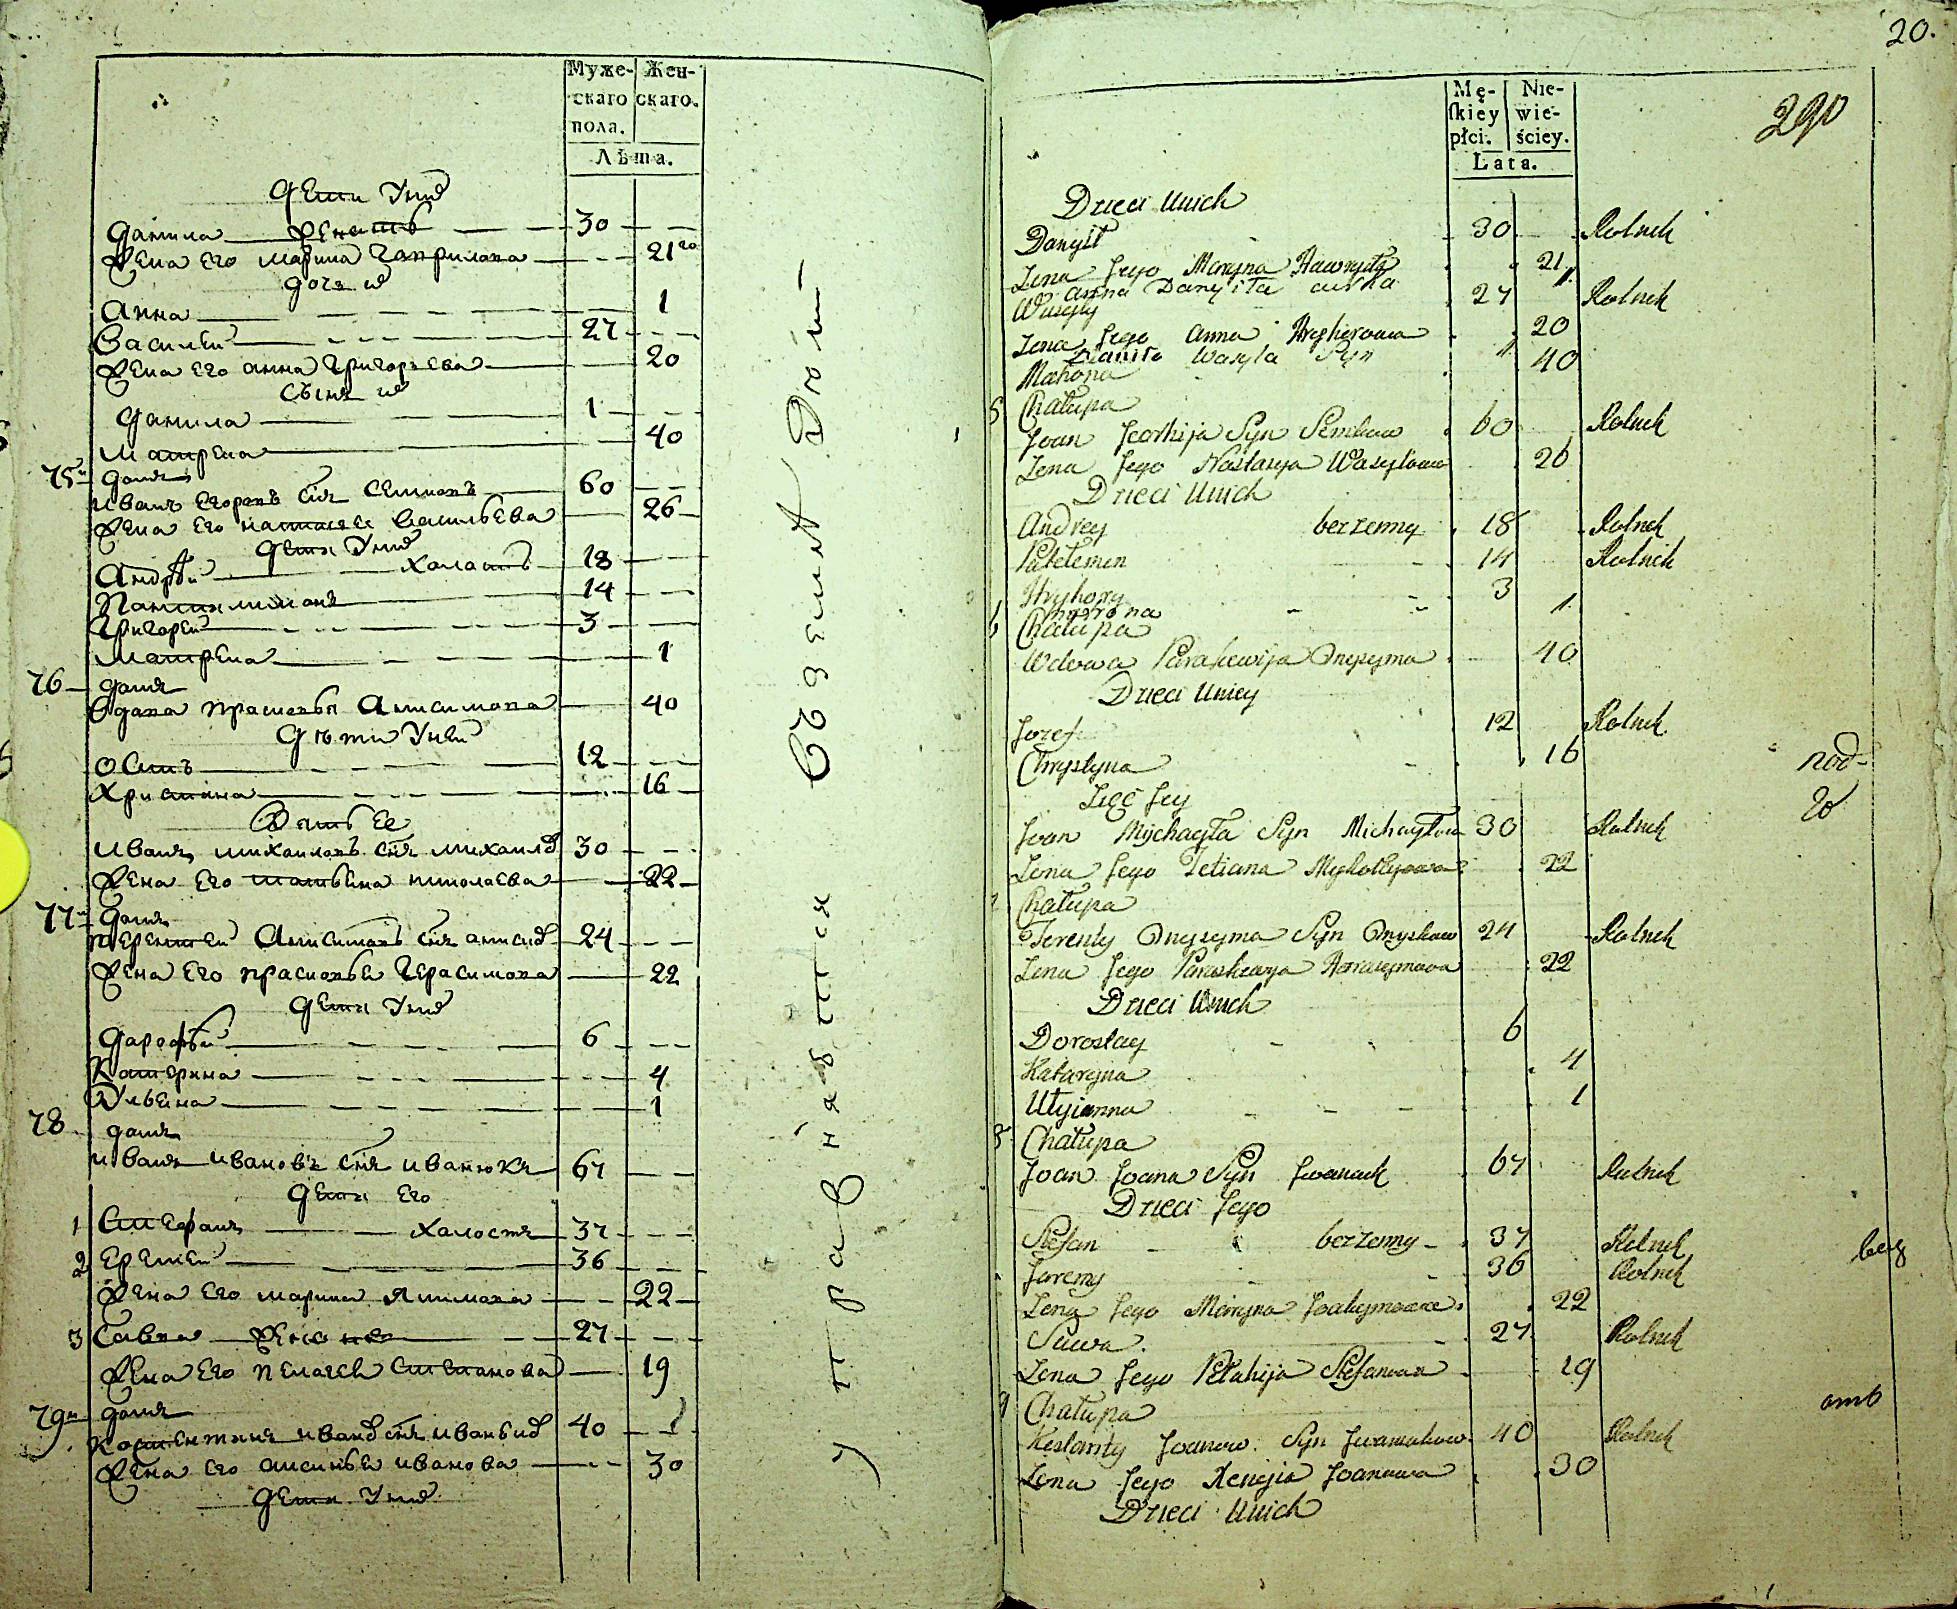 Муже- Жен-
скаго скаго.
пола.
Лѣта.
Дети У них
Данила женатъ 30
Жена Его Марина Гаврилова 21
дочь их
Анна 1
Василей 27
Жена Его Анна Григорьева 20
Сынъ их
Данила 1
Матрена 40
75 домъ
Иванъ Егоровъ Снъ Семиновъ 60
Жена Его Настасея Васильева 26
Дети У них
Андрѣй Холостъ 18
Пантилимонъ 14
Григорей 3
Матрена 1
76 домъ
Вдова Прасковья Анисимова 40
Дѣти У неи
Осипъ 12
Христина 16
Зять Ее
Иванъ Михаиловъ Снъ Михаилов 30
Жена Его Татьяна Николаева 22
77 домъ
Терентей Анисимовъ Снъ 24
Жена Его Прасковья Герасимова 22
Дети У них
Дарофѣй 6
Катерина 4
Ульяна 1
78 домъ
Иванъ Ивановъ Снъ Иванюкъ 67
Дети Его
1 Стефанъ Холостъ 37
2 Еремей 36
Жена Его Марина Якимова 22
3 Савва женатъ 27
Жена Его Пелагея Степанова 19
79 домъ
Констентинъ Иванов Снъ 40
Жена Его Аксинья Иванова 30
Дети У них
Управляется Сей Землей
20.
290
Mę- Nie-
skiey wie-
płci. ściey.
Lata.
Dzieci Unich
Danyił 30 Rolnik
Zena Jego Maryna Hawryła 21
Anna Danyiła curka 1
Wasyly 27 Rolnik
Zena Jego Anna Hryhorowa 20
Daniło Wasyla Syn 1
Matrona 40
5 Chałupa
Joan Jeorhija Syn Semkow 60 Rolnik
Zena Jego Nastasya Wasylowa 26
Dzieci Unich
Andrey bezzenny 18 Rolnik
Patelemon 14 Rolnik
Hryhory 3
Matrona 1
6 Chałupa
Wdowa Paraskewija Onysyma 40
Dzieci Uniey
Jozef 12 Rolnik
Chrystyna 16
Zięć Jey
Joan Mychayła Syn Michayłow 30 Rolnik
Zena Jego Tetiana Mykołajowa 22
7 Chałupa
Terenty Onysyma Syn Onyskow 24 Rolnik
Zena Jego Paraskewya Harasymowa 22
Dzieci Unich
Dorosłay 6
Kataryna 4
Ulyianna 1
8 Chałupa
Joan Joana Syn Jwaniuk 67 Rolnik
Dzieci Jego
Stefan bezzenny 37 Rolnik
Jeremy 36 Rolnik
Zena Jego Maryna Joakymowa 22
Sawa 27 Rolnik
Zena Jego Pełahija Stefanowa 19
9 Chałupa
Kostanty Joanow Syn Jwaniukow 40 Rolnik
Zena Jego Xenyia Joanowa 30
Dzieci Unich